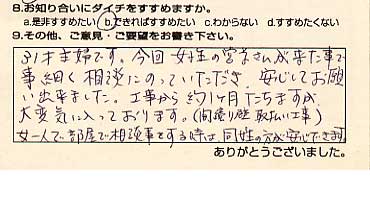 8.お知り合いにダイチをすすめますか。
a.是非すすめたい b.できればすすめたい c.わからない d.すすめたくない
9.その他、ご意見・ご要望をお書き下さい。
31才主婦です。今回女性の営業さんが来た事で
事細く相談にのっていただき、安心してお願
い出来ました。工事から約1ヶ月たちますが、
大変気に入っております。(間違り壁 取払い工事)
女一人で部屋で相談事をする時は、同性の方が安心できます。
ありがとうございました。